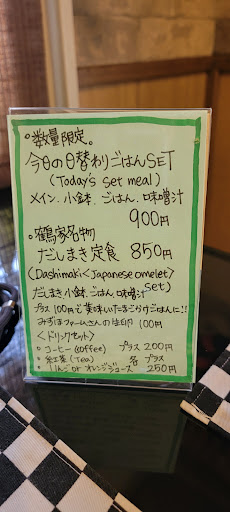 ◦数量限定。
今日の日替わりごはんSET
(Today's set meal)
メイン、小鉢、ごはん、味噌汁
900円
◦鶴家名物
だしまき定食 850円
(Dashimaki<Japanese omelet>
set)
だしまき、小鉢、ごはん、味噌汁
プラス100円で美味いたまごかけごはんに!!
みずほファームさんの生卵 100円
<ドリンクセット>
◦コーヒー(coffee) プラス200円
◦紅茶(Tea) 各 プラス
◦りんご or オレンジジュース 250円